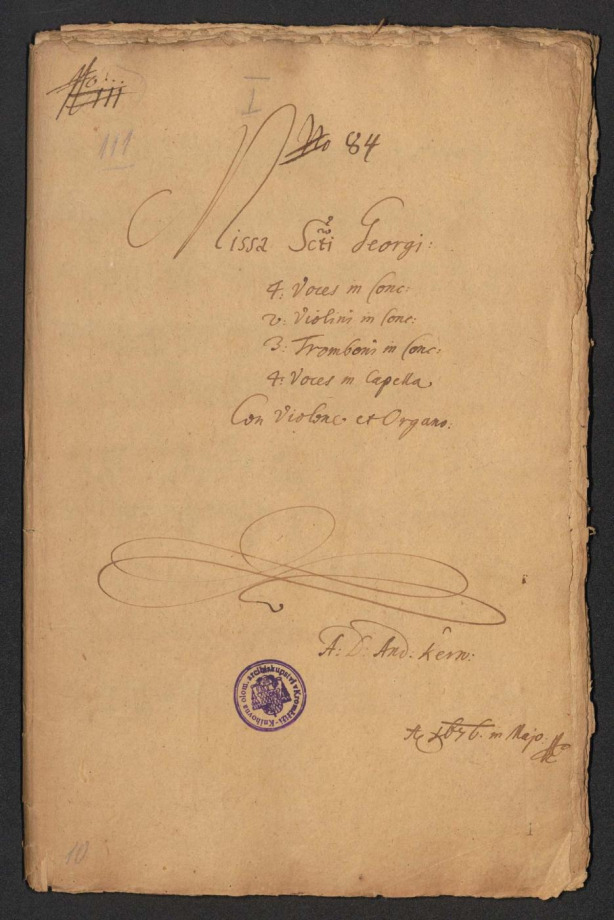 No 111
I
111
No 84
Missa Scti Georgi:
4: Voces in Conc:
2: Violini in Conc:
3: Tromboni in Conc:
4: Voces in Capella.
Con Violone et Organo.
A: D: And: Kern:
Knihovna olom. arcibiskupství v Kroměříži
A 1676. in Majo.
1
10